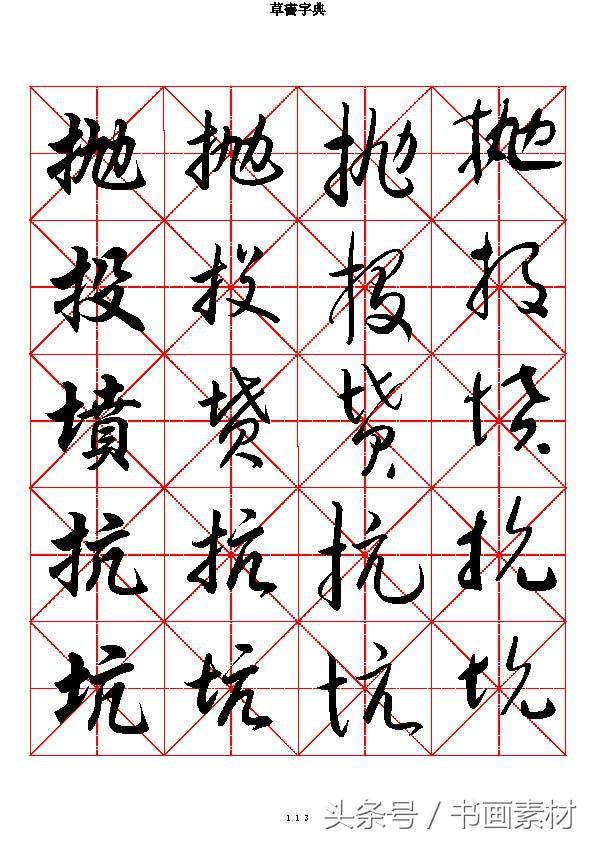 草書字典
抛抛抛抛
投投投投
墳墳墳墳
抗抗抗抗
坑坑坑坑
113
头条号 / 书画素材